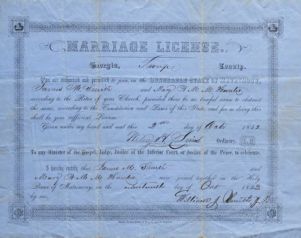 MARRIAGE LICENSE.
Georgia, Troup County.
You are authorized and permitted to join in the HONORABLE STATE OF MATRIMONY,
James M Smith and Mary F. M. M.
according to the Rites of your Church, provided there be no lawful cause to obstruct
the same, according to the Constitution and Laws of this State, and for so doing this
shall be your sufficient License.
Given under my hand and seal this day of Oct 185
Ordinary. L.S.
To any Minister of the Gospel, Judge, Justice of the Inferior Court, or Justice of the Peace, to celebrate.
I hereby certify that James M. Smith and
Mary were joined together in the Holy
Bans of Matrimony, on the day of Oct 185
by me, William J.